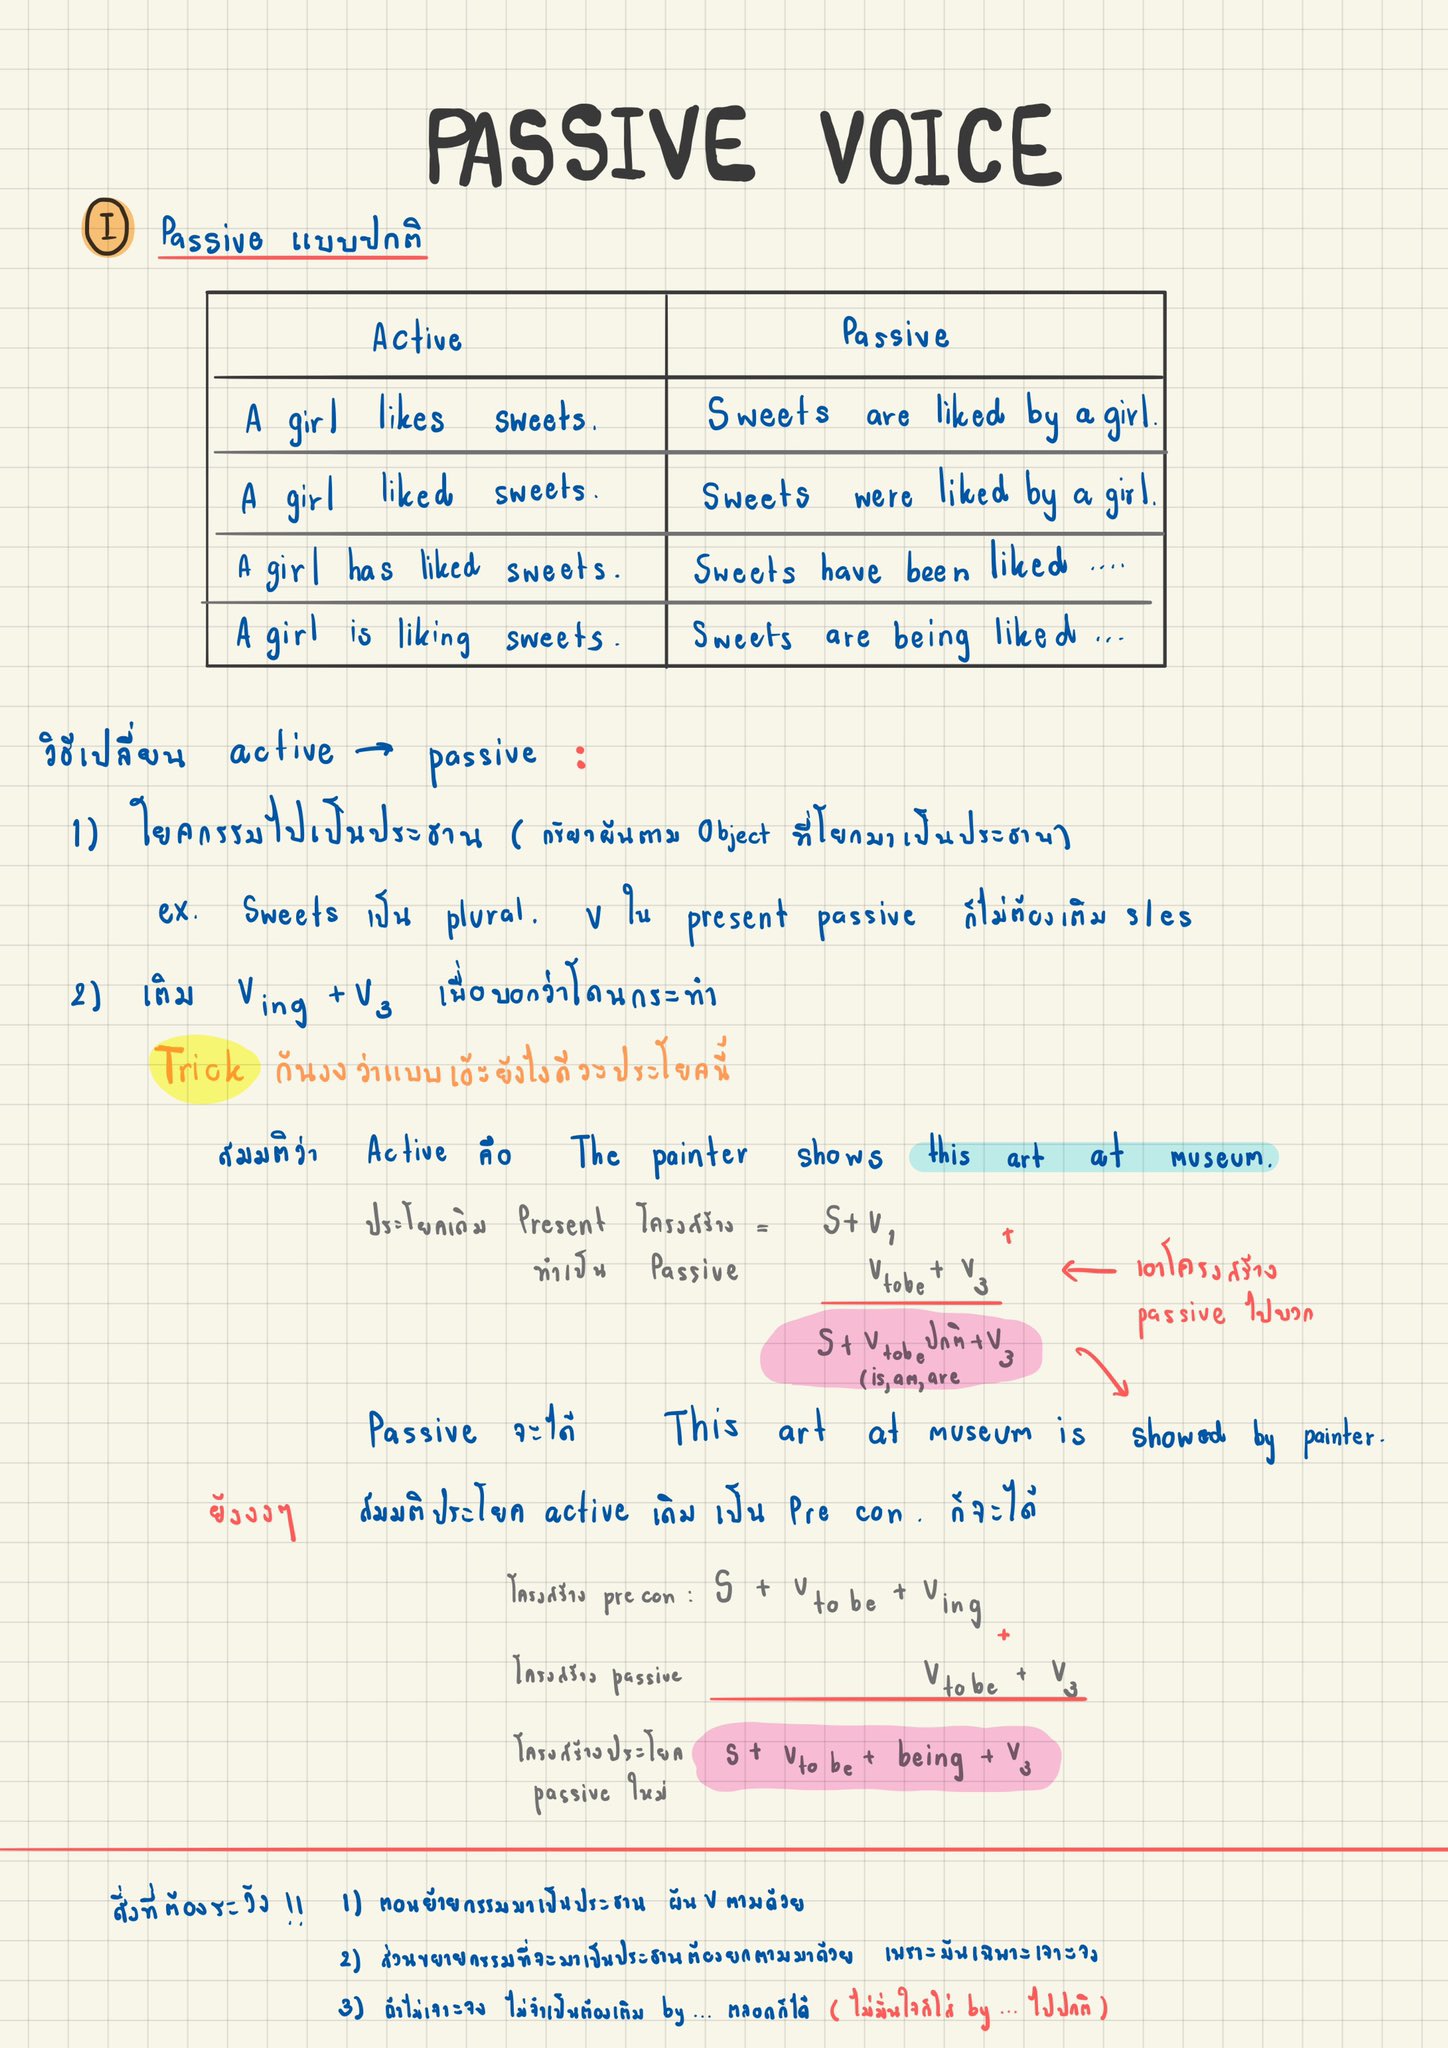 PASSIVE VOICE
I Passive แบบปกติ
Active Passive
A girl likes sweets. Sweets are liked by a girl.
A girl liked sweets. Sweets were liked by a girl.
A girl has liked sweets. Sweets have been liked ....
A girl is liking sweets. Sweets are being liked ...
วิธีเปลี่ยน active → passive :
1) โยกกรรมไปเป็นประธาน ( กริยาผันตาม Object ที่โยกมาเป็นประธาน)
ex. Sweets เป็น plural. V ใน present passive ก็ไม่ต้องเติม s/es
2) เติม Ving + V3 เพื่อบอกว่าโดนกระทำ
Trick กันงงว่าแบบเอ๊ะยังไงดีวะประโยคนี้
สมมติว่า Active คือ The painter shows this art at museum.
ประโยคเดิม Present โครงสร้าง = S+ V1
+
ทำเป็น Passive Vtobe + V3 ← เอาโครงสร้าง
passive ไปบวก
S+ Vtobe ปกติ+V3
(is,am,are
Passive จะได้ This art at museum is showed by painter.
ยังงงๆ สมมติประโยค active เดิม เป็น Pre con. ก็จะได้
โครงสร้าง pre con : S + Vto be + Ving
+
โครงสร้าง passive Vto be + V3
โครงสร้างประโยค S+ Vto be + being + V3
passive ใหม่
สิ่งที่ต้องระวัง !! 1) ตอนย้ายกรรมมาเป็นประธาน ผัน V ตามด้วย
2) ส่วนขยายกรรมที่จะมาเป็นประธานต้องยกตามมาด้วย เพราะมันเฉพาะเจาะจง
3) ถ้าไม่เจาะจง ไม่จำเป็นต้องเติม by ... ตลอดก็ได้ ( ไม่มั่นใจก็ใส่ by ... ไปปกติ )